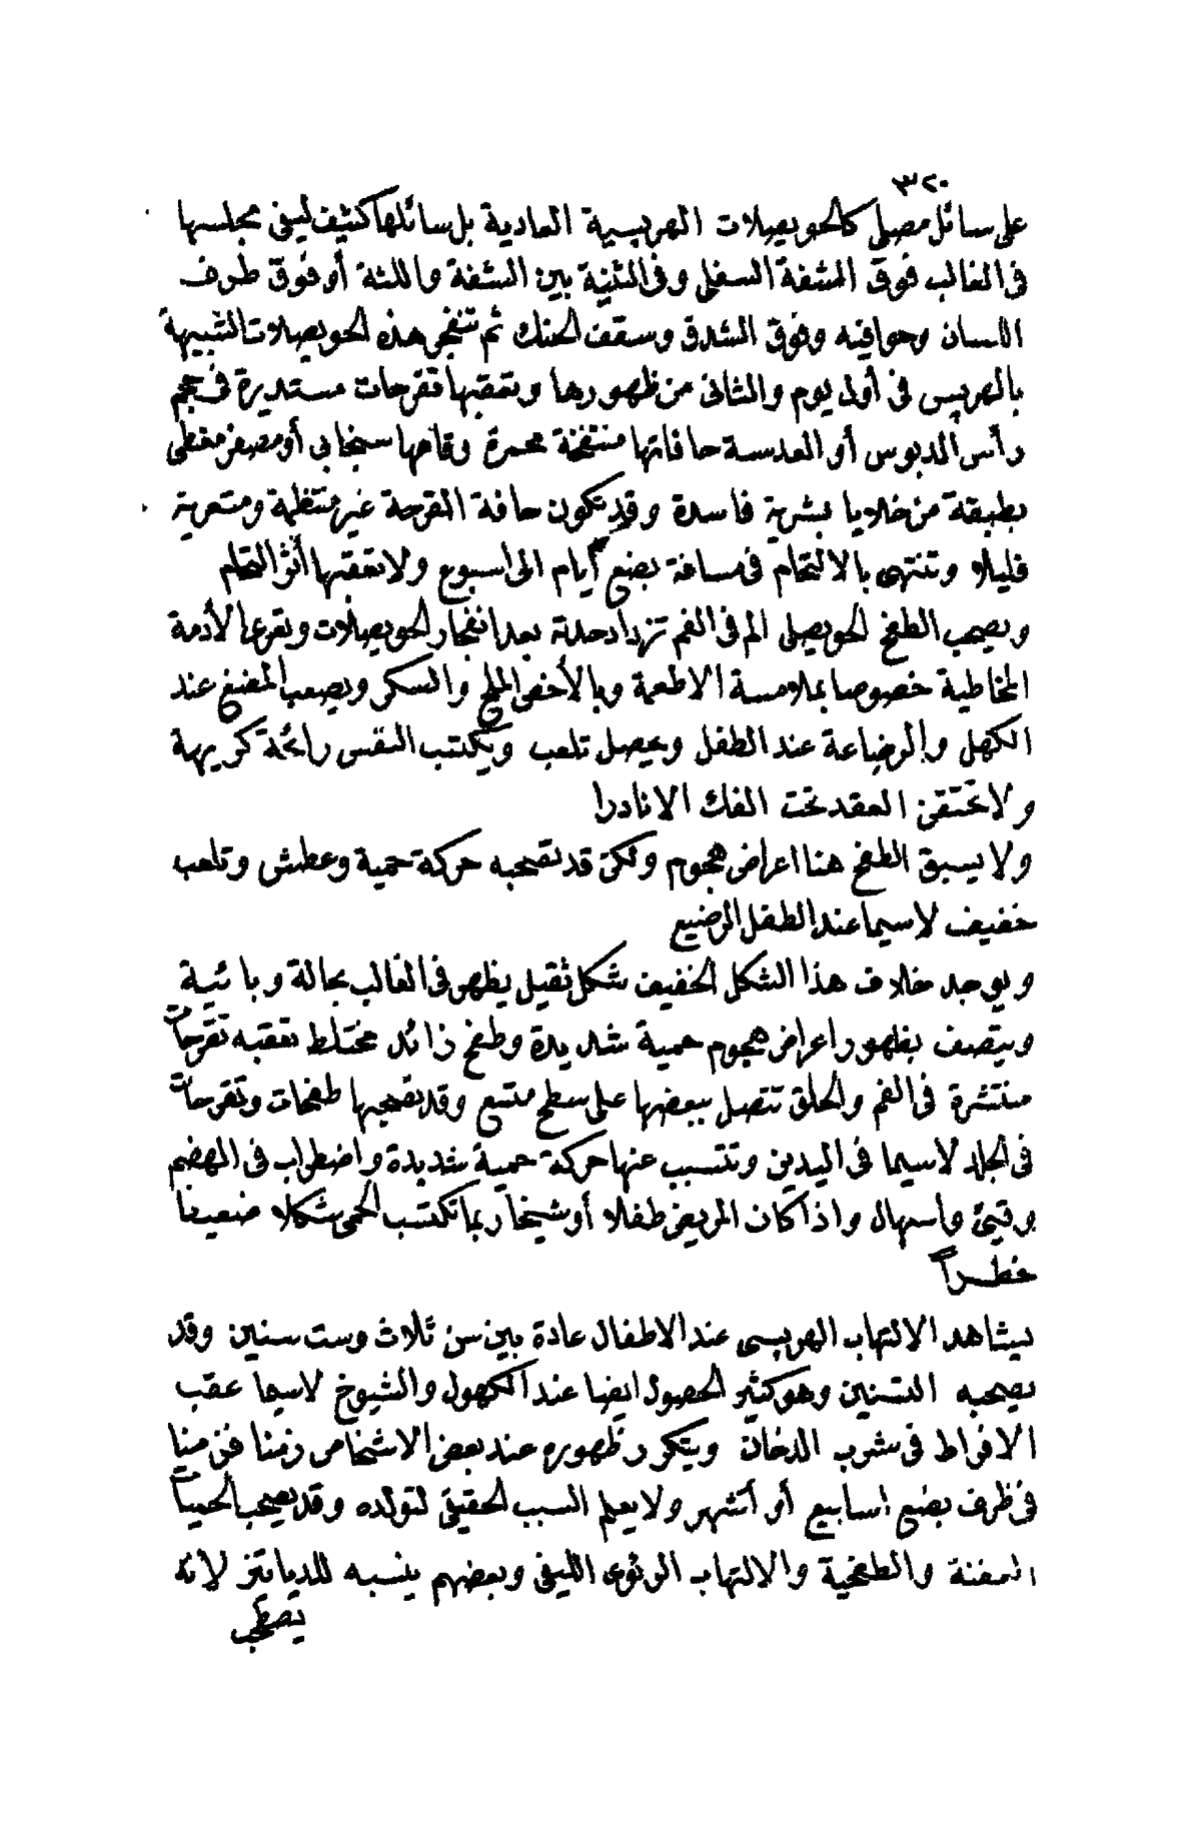 ٣٢٠
على سائل مصلى كالحويصلات الهربسية العادية بل سائلها كثيف ليفى مجلسها
فى الغالب فوق الشفة السفلى وفى الثنية بين الشفة واللثة أو فوق طرف
اللسان وحوافيه وفوق الشدق وسقف الحنك ثم تنفجر هذه الحويصلات الشبيهة
بالهربس فى أول يوم والثانى من ظهورها وتعقبها تقرحات مستديرة فى حجم
رأس الدبوس أو العدسة حافاتها منتفخة محمرة وقاعها سنجابي أو مصفر مغطى
بطبقة من خلايا بشرية فاسدة وقد تكون حافة القرحة غير منتظمة ومتعرية
قليلا وتنتهى بالالتحام فى مسافة بضع أيام الى اسبوع ولا تعقبها أثر التحام
ويصحب الطفح الحويصلى الم فى الفم تزداد حدته بعد انفجار الحويصلات وتعرى الأدمة
المخاطية خصوصا بملامسة الاطعمة وبالأخص الملح والسكر ويصعب المضغ عند
الكهل والرضاعة عند الطفل ويحصل تلعب ويكتسب النفس رائحة كريهة
ولا تحتقن العقد تحت الفك الا نادرا
ولا يسبق الطفح هنا اعراض هجوم ولكن قد تصحبه حركة حمية وعطش وتلعب
خفيف لاسيما عند الطفل الرضيع
ويوجد خلاف هذا الشكل الخفيف شكل ثقيل يظهر فى الغالب بحالة وبائية
ويتصف بظهور اعراض هجوم حمية شديدة وطفح زائد مختلط تعقبه تقرحات
منتشرة فى الفم والحلق تتصل ببعضها على سطح متسع وقد تصحبها طفحات وتقرحات
فى الجلد لاسيما فى اليدين وتتسبب عنها حركة حمية شديدة واضطراب فى الهضم
وقيئ واسهال واذا كان المريض طفلا أو شيخا ربما تكتسب الحمى شكلا ضعيفا
خطراً
يشاهد الالتهاب الهربسى عند الاطفال عادة بين سن ثلاث وست سنين وقد
يصحبه التسنين وهو كثير الحصول ايضا عند الكهول والشيوخ لاسيما عقب
الافراط فى شرب الدخان ويتكرر ظهوره عند بعض الاشخاص زمنا فزمنا
فى ظرف بضع اسابيع أو أشهر ولا يعلم السبب الحقيقى لتولده وقد يصحب الحميات
العفنة والطفحية والالتهاب الرئوى الليفى وبعضهم ينسبه للدياتيز لانه
يصطحب